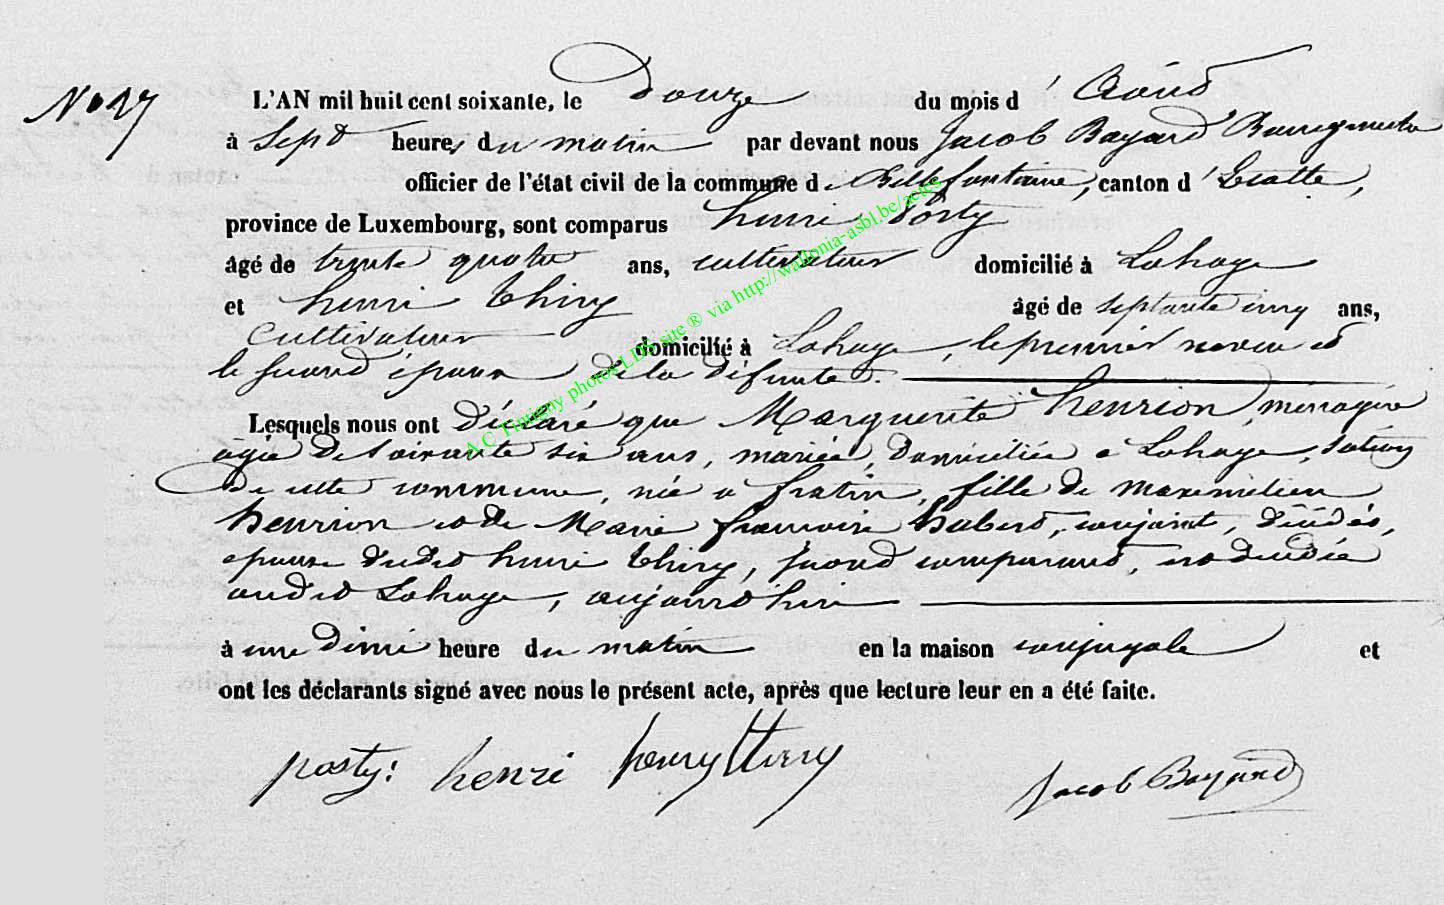 N° 27
L'AN mil huit cent soixante, le Douze du mois d'Août
à Sept heures du matin par devant nous Jacob Bayard Bourgmestre
officier de l'état civil de la commune de Bellefontaine, canton d'Etalle,
province de Luxembourg, sont comparus henri Posty
âgé de trente quatre ans, cultivateur domicilié à Lahage
et henri Thiry âgé de septante cinq ans,
Cultivateur domicilié à Lahage, le premier neveu et
le second époux de la défunte.
Lesquels nous ont déclaré que Marguerite henrion, ménagère
agée de soixante six ans, mariée, domiciliée a Lahage, section
de cette commune, née a fratin, fille de maximilien
henrion et de Marie françoise hubert, conjoint, décédés,
epouse dudit henri Thiry, second comparant, est décédée
audit Lahage, aujourdhui
à une demi heure du matin en la maison conjugale et
ont les déclarants signé avec nous le présent acte, après que lecture leur en a été faite.
posty: henri henry thiry Jacob Bayard
A C Tintigny photos LDS site ® via http://wallonia-asbl.be/actes